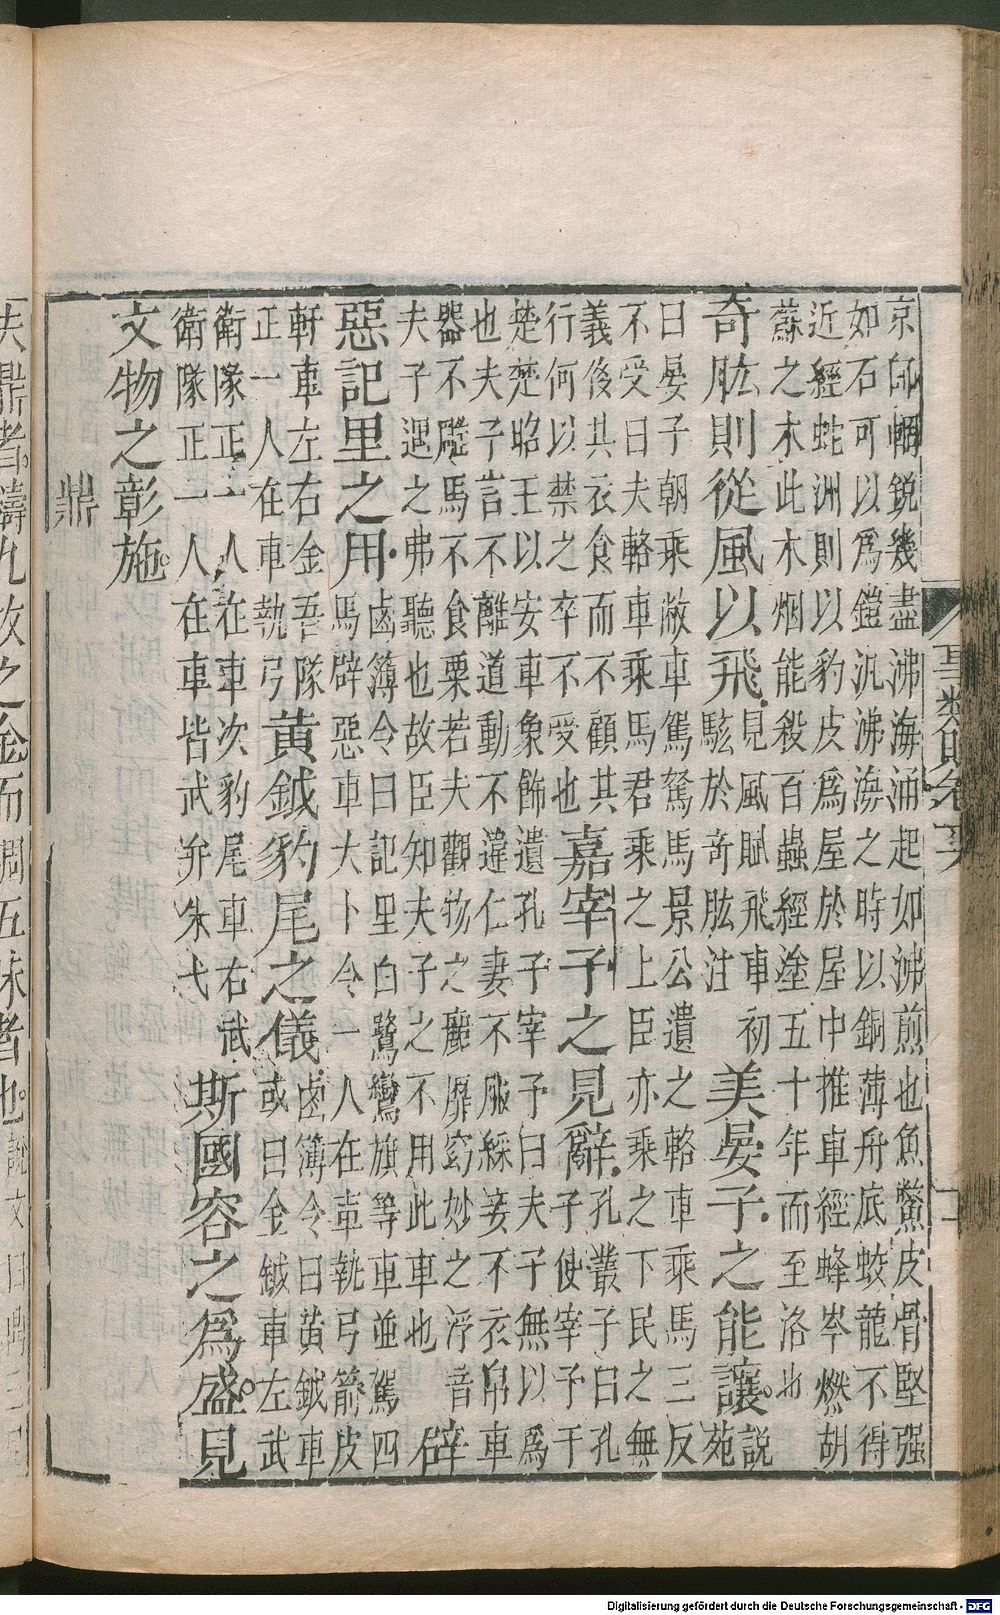 京師輻銳幾盡沸海涌起如沸煎也魚鱉皮骨堅强
如石可以爲鎧汎沸海之時以銅薄舟底蛟龍不得
近經蛇洲則以豹皮爲屋於屋中推車經蜂岑燃胡
蘇之木此木烟能殺百蟲經塗五十年而至洛也
奇肱則從風以飛見風賦飛車初駭於奇肱注美晏子之能讓說苑
曰晏子朝乘敝車駕駑馬景公遺之輅車乘馬三反
不受曰夫輅車乘馬君乘之上臣亦乘之下民之無
義後其衣食而不顧其
行何以禁之卒不受也嘉宰子之見辭孔叢子曰孔子使宰予于
楚楚昭王以安車象飾遺孔子宰予曰夫子無以爲
也夫子言不離道動不違仁妻不服綵妾不衣帛車
器不雕馬不食粟若夫觀物之麗靡窈妙之浮音
夫子遇之弗聽也故臣知夫子之不用此車也辟
惡記里之用鹵簿令曰記里白鷺鸞旗等車並駕四馬辟惡車大卜令一人在車執弓箭皮
軒車左右金吾隊
正一人在車執弓黃鉞豹尾之儀鹵簿令曰黃鉞車或曰金鉞車左武
衛隊正一人在車次豹尾車右武
衛隊正一人在車皆武弁朱弋斯國容之爲盛見
文物之彰施
鼎
事類賦卷十六
夫鼎者鑄九牧之金而調五味者也說文曰鼎三足
Digitalisierung gefördert durch die Deutsche Forschungsgemeinschaft - DFG